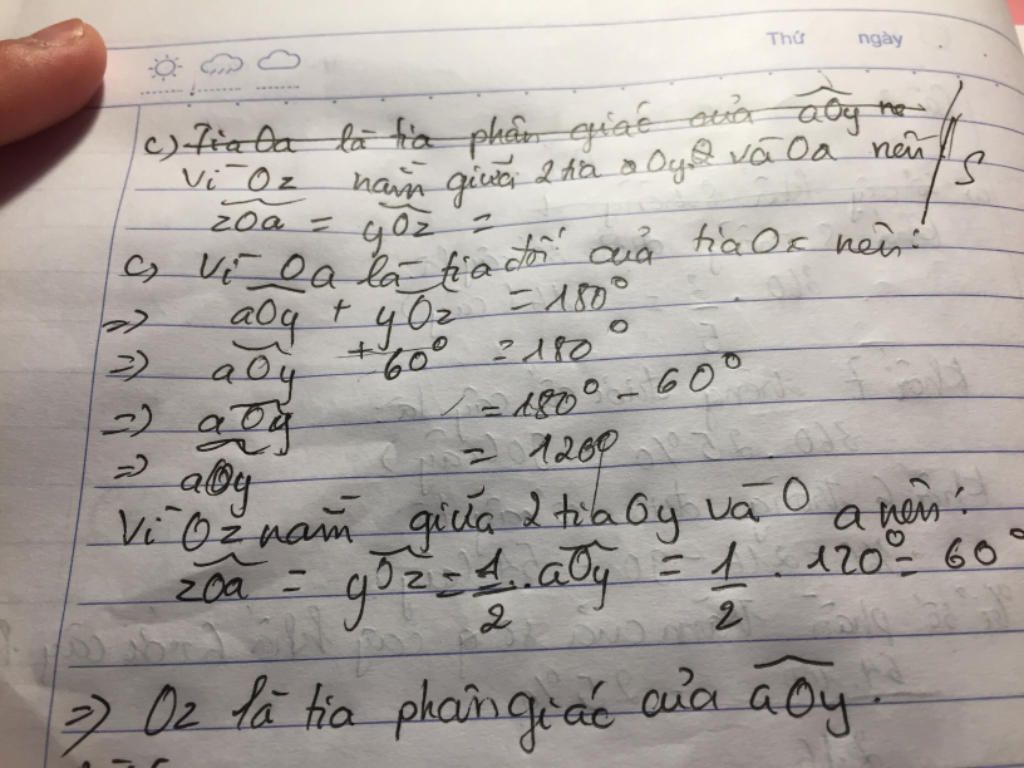 Thứ ngày
c) Tia Oa là tia phân giác của aOy nê
Vì Oz nằm giữa 2 tia Oy và Oa nên S
zOa = yOz =
c, Vì Oa là tia đối của tia Ox nên:
=> aOy + yOz = 180°
=> aOy + 60° = 180°
=> aOy = 180° - 60°
=> aOy = 120°
Vì Oz nằm giữa 2 tia Oy và O a nên:
zOa = yOz = 1/2 . aOy = 1/2 . 120° = 60°
=> Oz là tia phân giác của aOy.